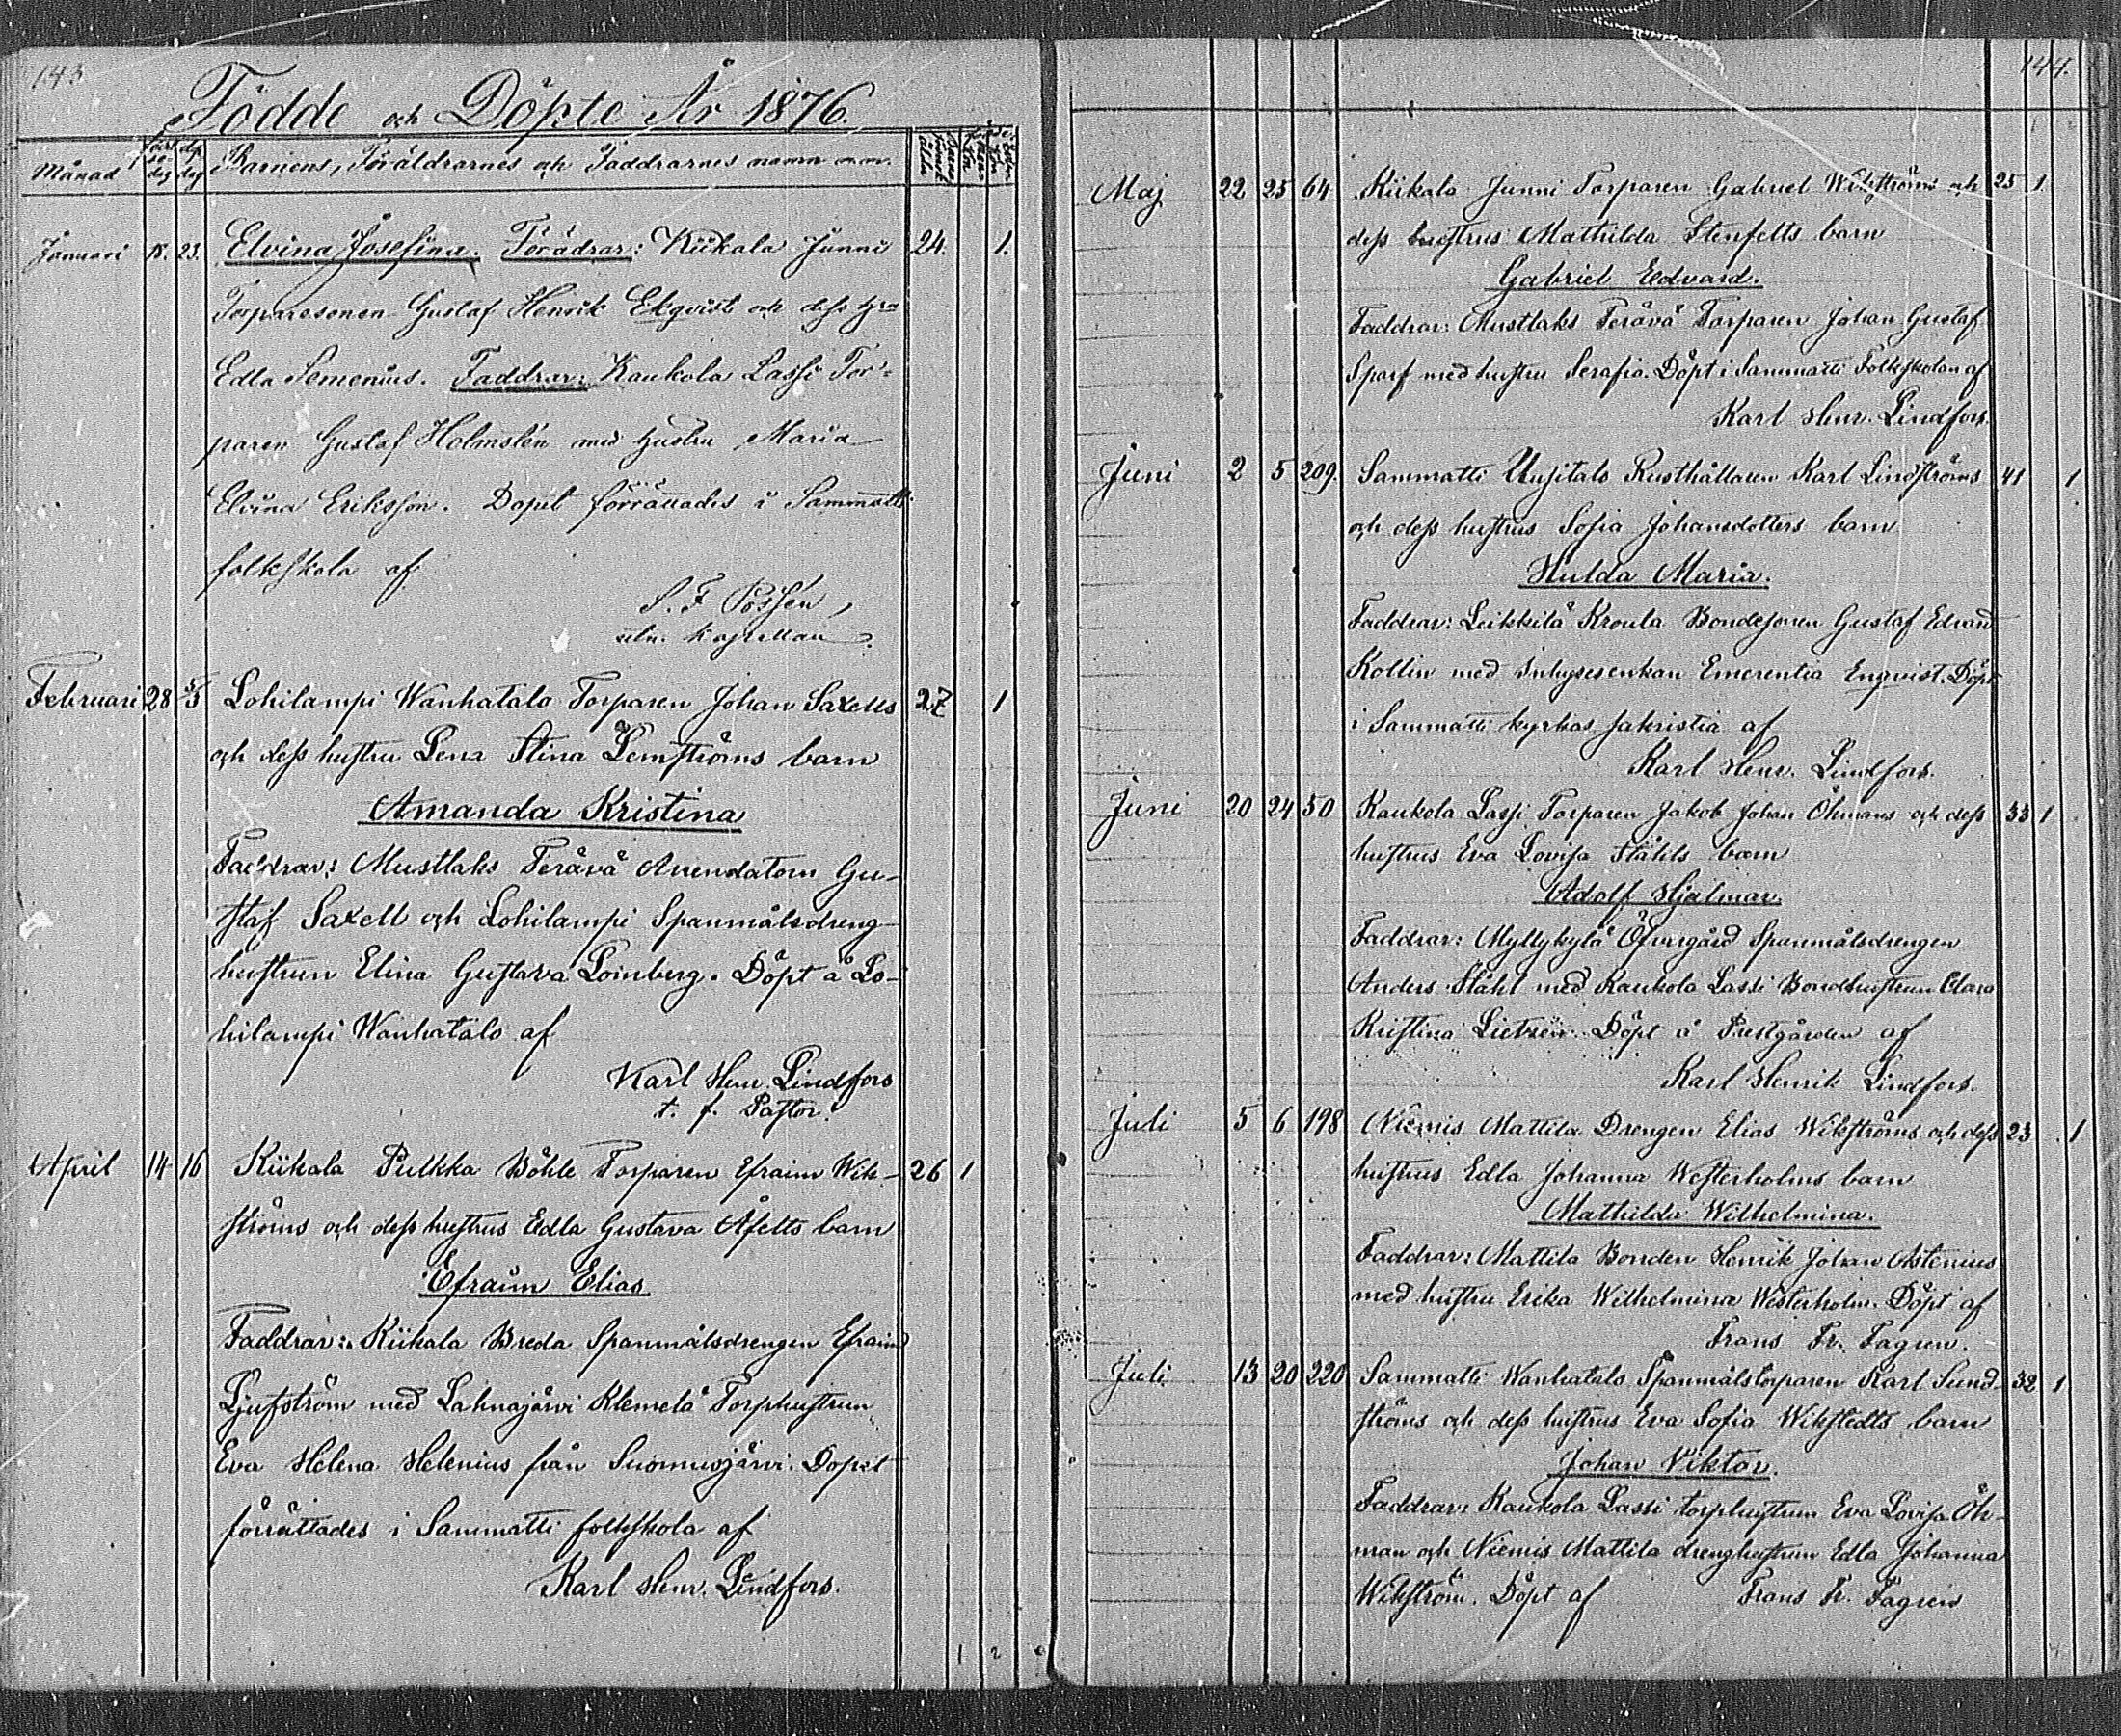 143
Födde och Döpte År 1876.
Månad födelse dag döp dag Barnens, Föräldrarnes och Faddrarnes namn m.m.
Januari 18. 23. Elvina Josefina. Förädrar: Kiikala Junni 24. 1.
Torparesonen Gustaf Henrik Ekqvist och dess Hru
Edla Semenius. Faddrar: Kaukola Lassi Tor=
paren Gustaf Holmstén med hustru Maria
Elvina Eriksson. Dopet förrättades i Sammatti
folkskola af
S. F. Possén,
adn. Kapellan.
Februari 28 5/3 Lohilampi Wanhatalo Torparen Johan Saxells 27 1
och dess hustru Lena Stina Lemströms barn
Amanda Kristina
Faddrar: Mustlaks Terävä Arrendatorn Gu-
staf Saxell och Lohilampi Spanmålsdreng-
hustrun Elina Gustava Loinberg. Döpt å Lo-
hilampi Wanhatalo af
Karl Henr. Lindfors
t. f. Pastor.
April 14 16 Kiikala Pulkka Böhle Torparen Efraim Wik- 26 1
ströms och dess hustrus Edla Gustava Åfelts barn
Efraim Elias
Faddrar: Kiikala Breda Spanmålsdrengen Efraim
Ljufström med Lahnajärvi Klemelä Torphustrun
Eva Helena Helenius från Suomusjärvi. Dopet
förrättades i Sammatti folkskola af
Karl Henr. Lindfors.
1 2
144.
Maj 22 25 64 Kiikala Junni Torparen Gabriel Wikströms och 25 1.
dess hustrus Mathilda Stenfelts barn
Gabriel Edvard.
Faddrar: Mustlaks Terävä Torparen Johan Gustaf
Sparf med hustru Serafia. Döpt i Sammatti Folkskolan af
Karl Henr. Lindfors.
Juni 2 5 209. Sammatti Uusitalo Rusthållaren Karl Lindströms 41 1
och dess hustrus Sofia Johansdotters barn
Hulda Maria.
Faddrar: Leikkilä Kroula Bondesonen Gustaf Edvard
Kollin med Inhysesenkan Emerentia Enqvist. Döpt
i Sammatti kyrkas sakristia af
Karl Henr. Lindfors.
Juni 20 24 50 Kaukola Lassi Torparen Jakob Johan Öhmans och dess 33 1
hustrus Eva Lovisa Ståhls barn
Adolf Hjalmar.
Faddrar: Myllykylä Öfvergård Spanmålsdrengen
Anders Ståhl med Kaukola Lassi Bondhustrun Clara
Kristina Lietzen. Döpt å Prestgården af
Karl Henrik Lindfors.
Juli 5 6 198 Niemis Mattila Drengen Elias Wikströms och dess 23 1
hustrus Edla Johanna Westerholms barn
Mathilda Wilhelmina.
Faddrar: Mattila Bonden Henrik Johan Astenius
med hustru Erika Wilhelmina Westerholm. Döpt af
Frans Fr. Fagren.
Juli 13 20 220 Sammatti Wanhatalo Spanmålstorparen Karl Sund- 32 1
ströms och dess hustrus Eva Sofia Wikstedts barn
Johan Viktor.
Faddrar: Kaukola Lassi torphustrun Eva Lovisa Öh-
man och Niemis Mattila drenghustrun Edla Johanna
Wikström. Döpt af Frans Fr. Fagren